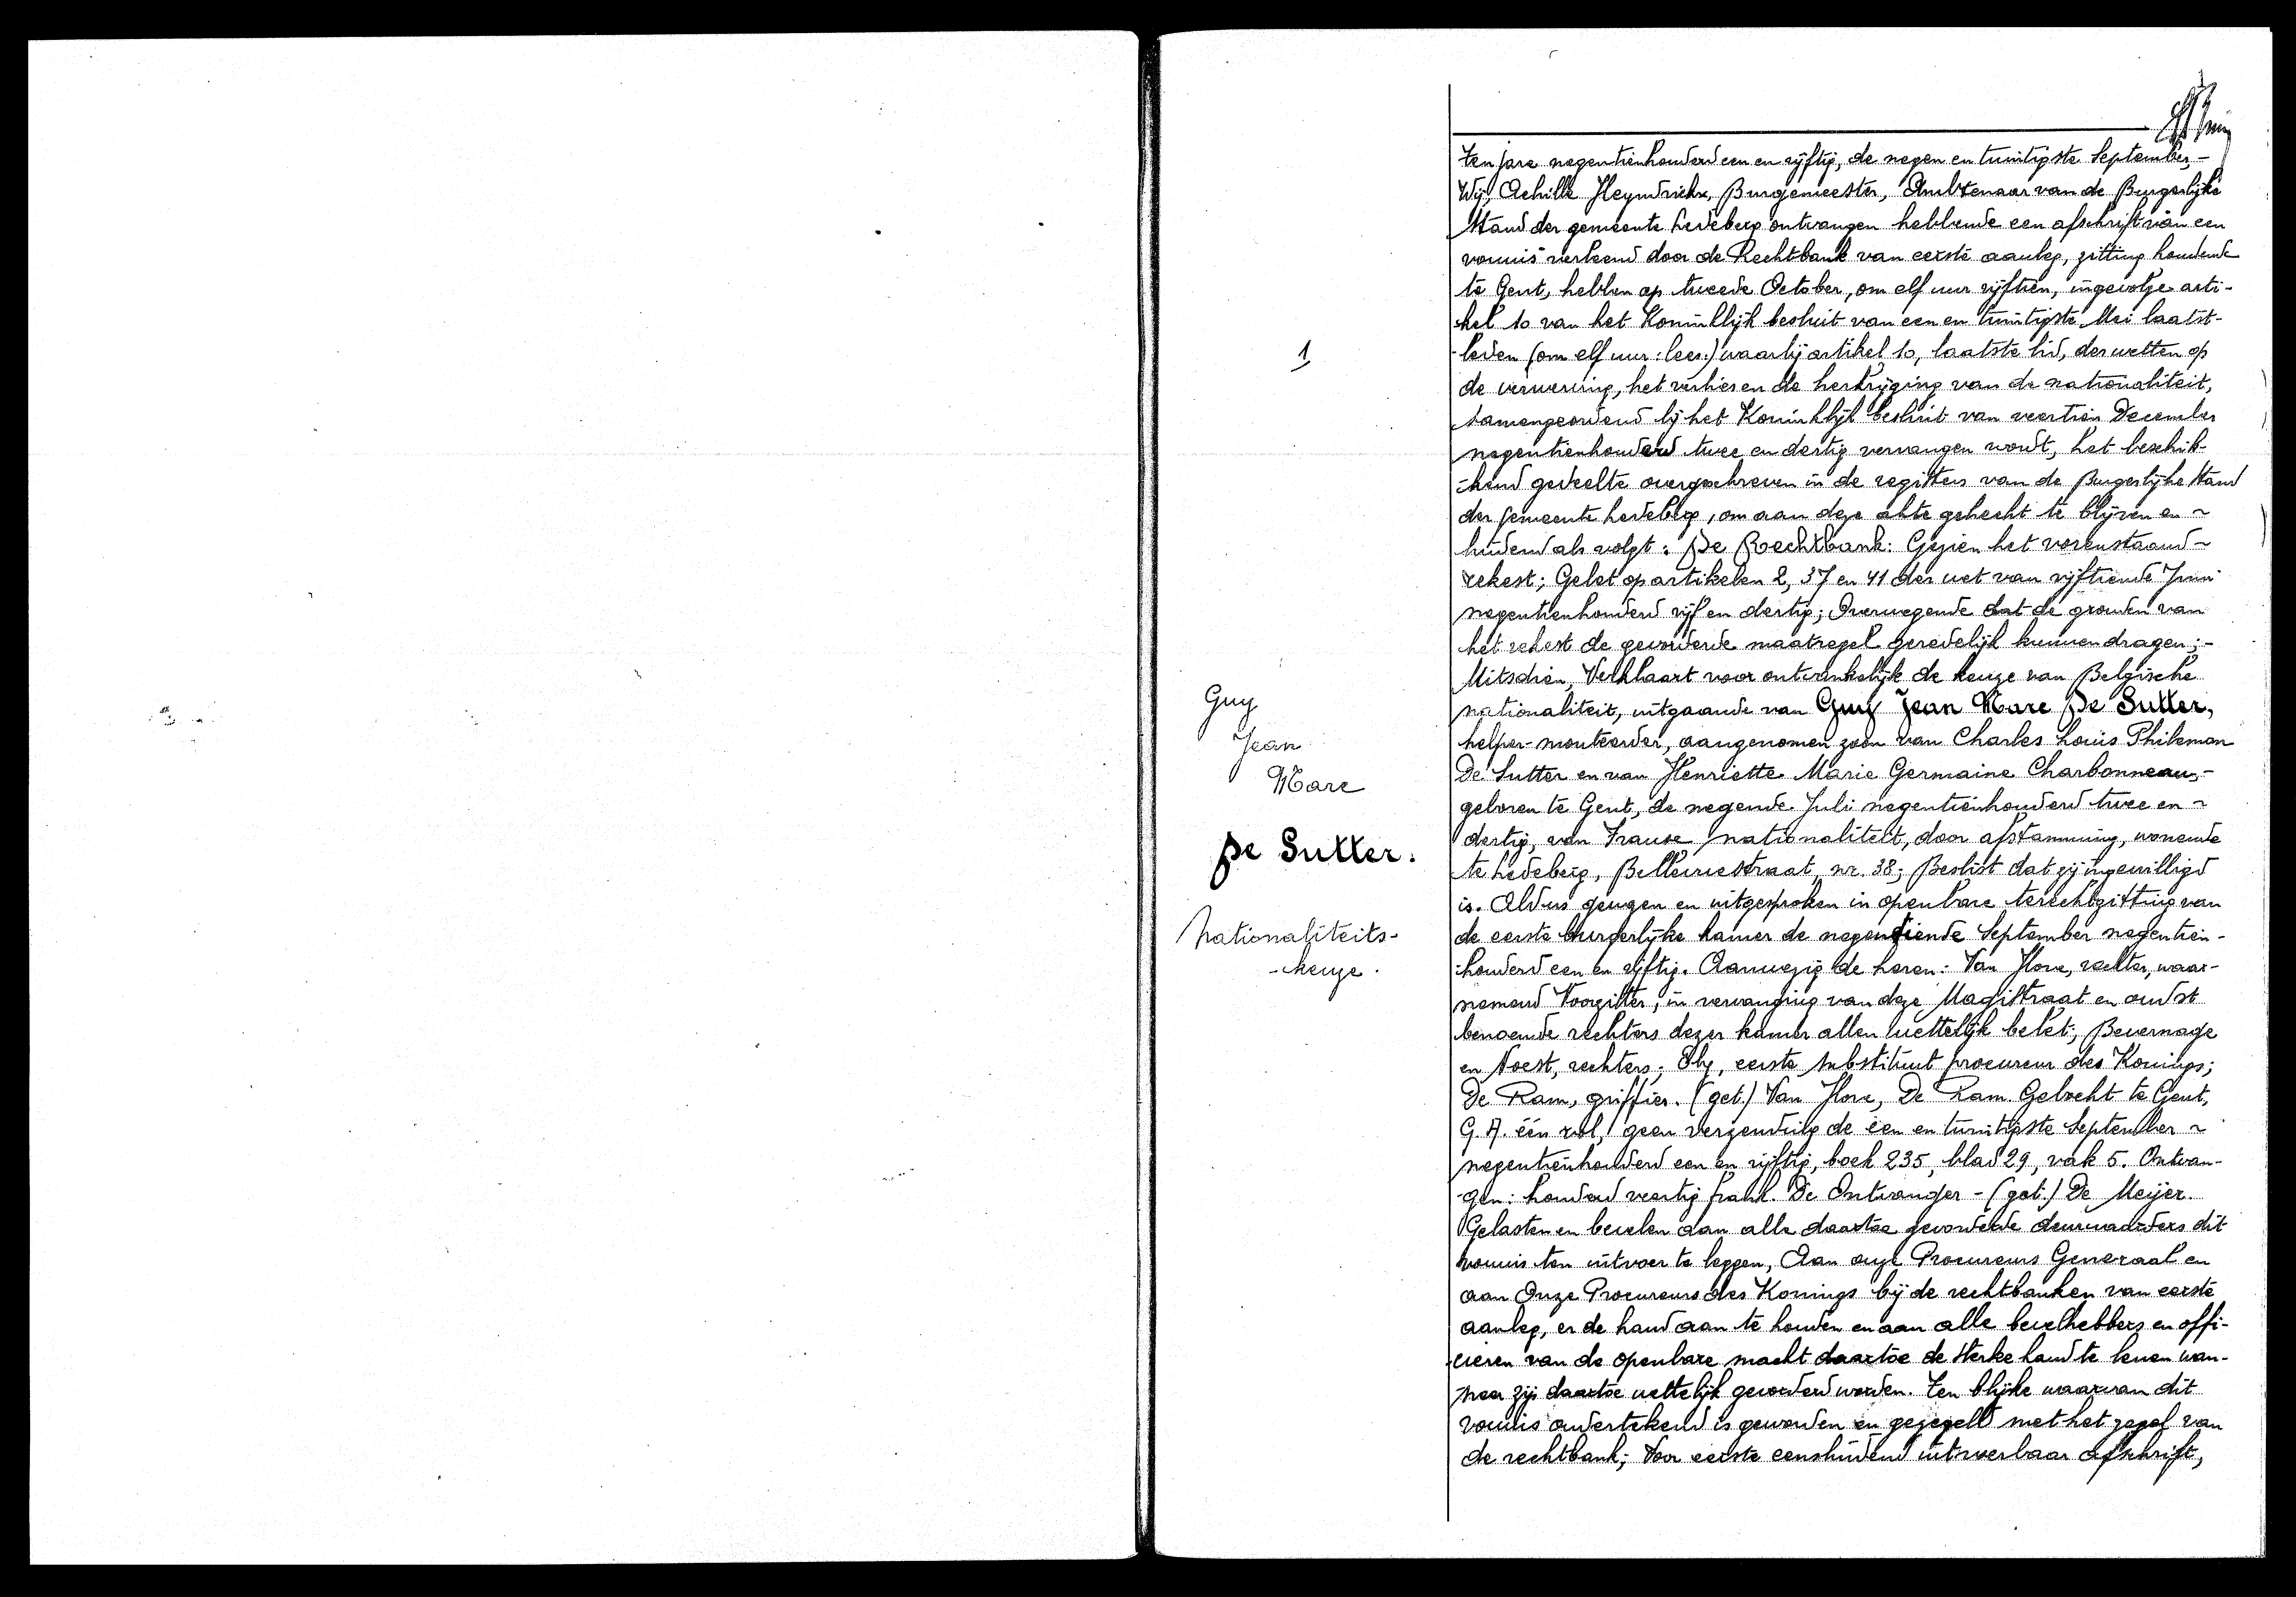 1
Guy
Jean
Marc
De Sutter.
Nationaliteits-
-keuze.
Ten jare negentienhonderd een en vijftig, de negen en twintigste September,-
Wij, Achille Heyndrickx, Burgemeester, Ambtenaar van de Burgerlijke
Stand der gemeente Ledeberg ontvangen hebbende een afschrift van een
vonnis verleend door de Rechtbank van eerste aanleg, zitting houdende
te Gent, hebben op tweede October, om elf uur vijftien, ingevolge arti-
-kel 10 van het Koninklijk besluit van een en twintigste Mei laatst-
-leden (om elf uur: lees:) waarbij artikel 10, laatste lid, der wetten op
de verwerving, het verlies en de herkrijging van de nationaliteit,
samengeordend bij het Koninklijk besluit van veertien December
negentienhonderd twee en dertig vervangen wordt, het beschik-
-kend gedeelte overgeschreven in de registers van de Burgerlijke Stand
der gemeente Ledeberg, om aan deze akte gehecht te blijven en ~
luidend als volgt: De Rechtbank: Gezien het vorenstaand ~
rekest; Gelet op artikelen 2, 37 en 41 der wet van vijftiende Juni
negentienhonderd vijf en dertig; Overwegende dat de gronden van
het rekest de gevorderde maatregel geredelijk kunnen dragen;-
Mitsdien, Verklaart voor ontvankelijk de keuze van Belgische
nationaliteit, uitgaande van Guy Jean Marc De Sutter,
helper-monteerder, aangenomen zoon van Charles Louis Philemon
De Sutter en van Henriette Marie Germaine Charbonneau,-
geboren te Gent, de negende Juli negentienhonderd twee en ~
dertig, van Franse nationaliteit, door afstamming, wonende
te Ledeberg, Bellevuestraat, nr. 38; Beslist dat zij ingewilligd
is. Aldus gewezen en uitgesproken in openbare terechtzitting van
de eerste burgerlijke kamer de negentiende September negentien-
-honderd een en vijftig. Aanwezig de heren: Van Hove, rechter, waar-
nemend Voorzitter, in vervanging van deze Magistraat en oudst
benoemde rechters dezer kamer allen wettelijk belet; Bevernage
en Voest, rechters; Oly, eerste substituut procureur des Konings;
De Ram, griffier. (get.) Van Hove, De Ram. Geboekt te Gent,
G.A. één rol, geen verzending de een en twintigste September ~
negentienhonderd een en vijftig, boek 235, blad 29, vak 5. Ontvan-
-gen: honderd veertig frank. De Ontvanger - (get.) De Meijer.
Gelasten en bevelen aan alle daartoe gevorderde deurwaarders dit
vonnis ten uitvoer te leggen, Aan onze Procureurs Generaal en
aan Onze Procureurs des Konings bij de rechtbanken van eerste
aanleg, er de hand aan te houden en aan alle bevelhebbers en offi-
-cieren van de openbare macht daartoe de sterke hand te lenen wan-
neer zij daartoe wettelijk gevorderd worden. Ten blijke waarvan dit
vonnis ondertekend is geworden en gezegeld met het zegel van
de rechtbank; Voor eerste eensluidend uitvoerbaar afschrift,